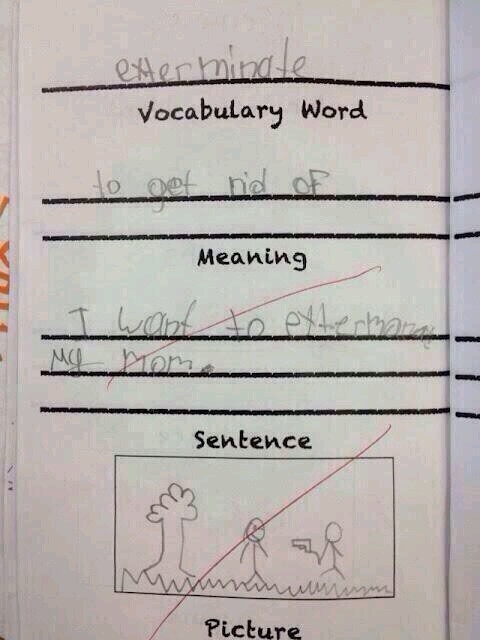 exterminate
Vocabulary Word
to get rid of
Meaning
I want to
my mom.
Sentence
Picture